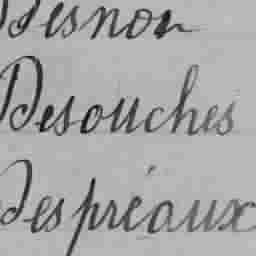 Desnon
Desouches
Despréaux